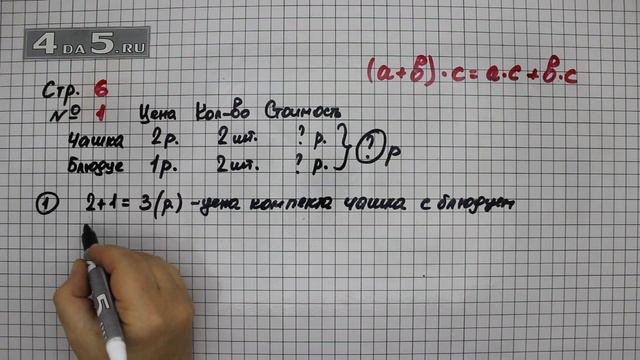 4DA5.RU
(a+b)·c=a·c+b·c
Стр. 6
№ 1 Цена Кол-во Стоимость
Чашка 2р. 2 шт. ? р.
Блюдце 1р. 2шт. ? р. ? р
1 2+1=3(р) -цена компекта чашка с блюдцем
5